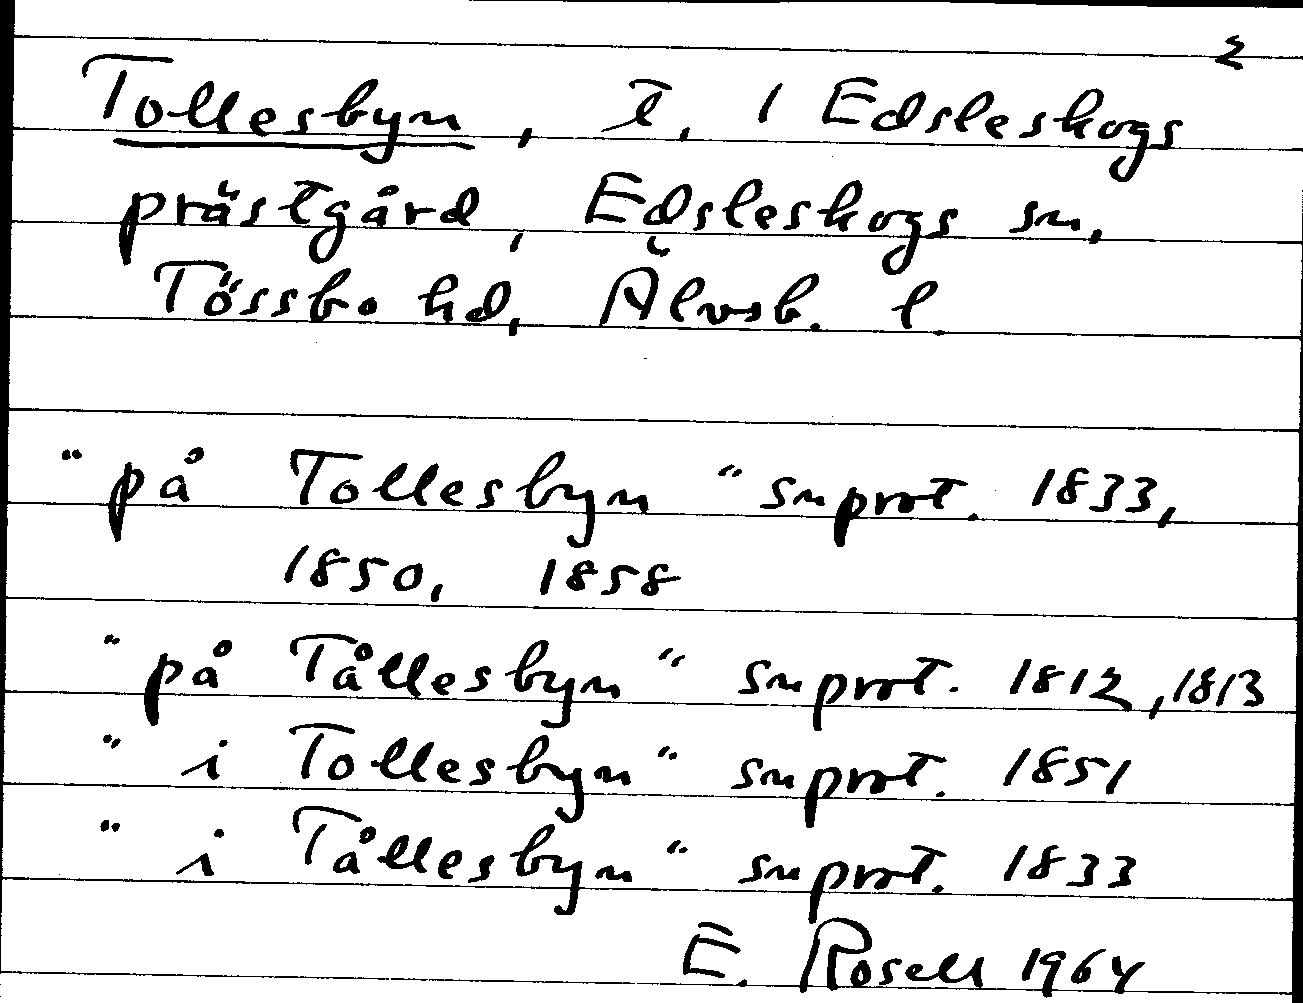 2
Tollesbyn, t. 1 Edsleskogs
prästgård, Edsleskogs sn,
Tössbo hd, Älvsb. l.
"på Tollesbyn" snprot. 1833,
1850, 1858
"på Tållesbyn" snprot. 1812, 1813
"i Tollesbyn" snprot. 1851
"i Tållesbyn" snprot. 1833
E. Rosell 1964